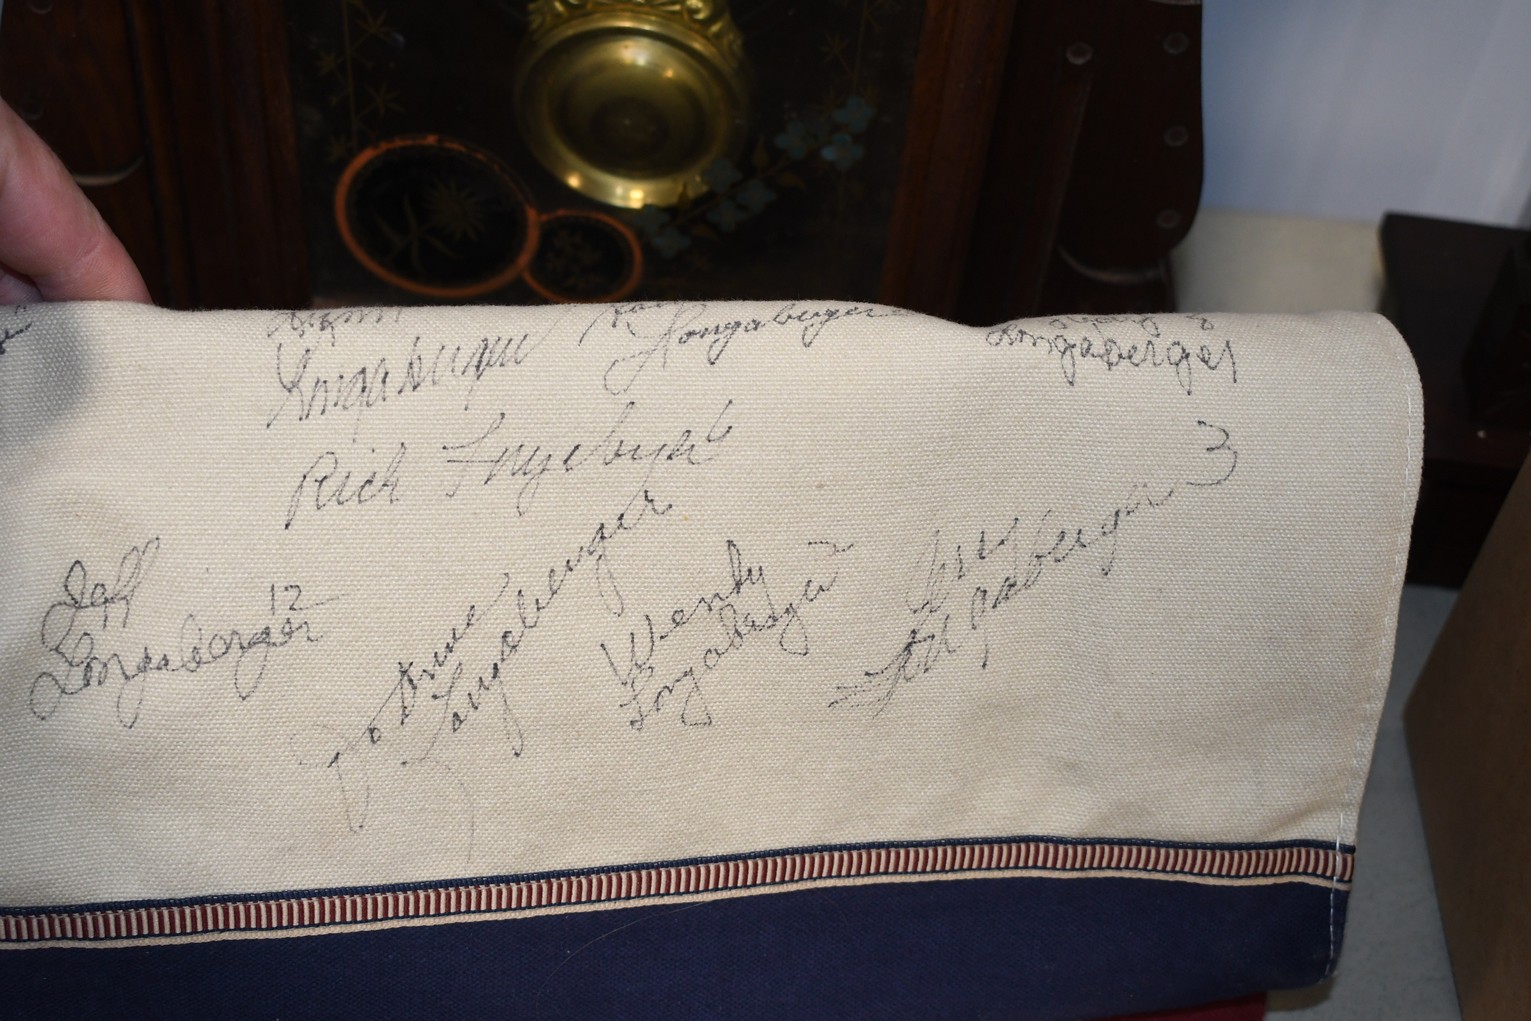 Longaberger
Longaberger
Longaberger
Rich Longaberger 6
Jeff
Longaberger 12
JoAnne
Longaberger
Wendy
Longaberger
Longaberger 3